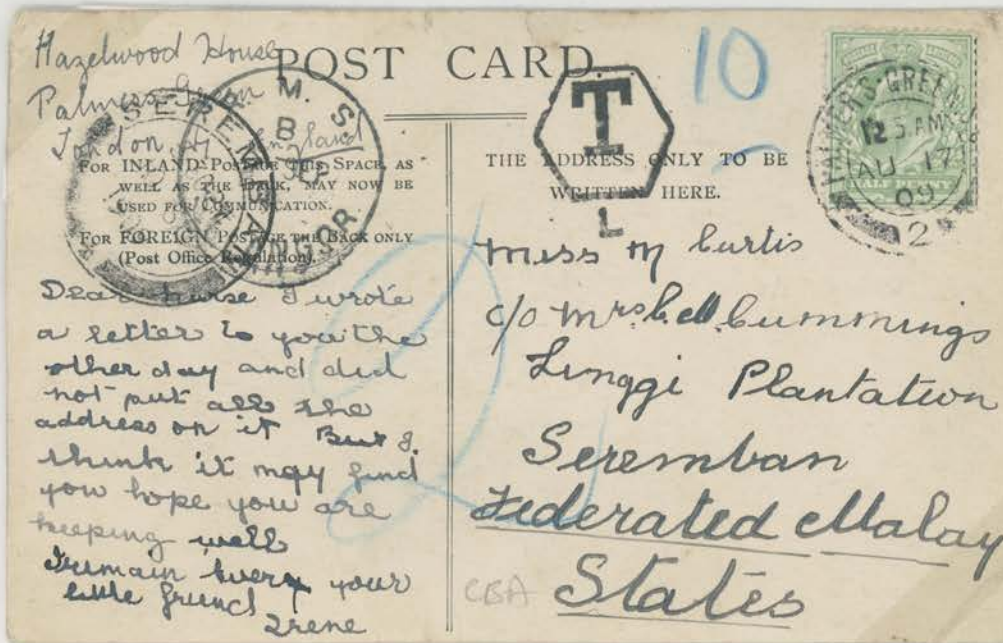 Hazelwood House
Palmers Green
London N England
POST CARD
FOR INLAND POSTAGE THIS SPACE, AS
WELL AS THE BACK, MAY NOW BE
USED FOR COMMUNICATION.
FOR FOREIGN POSTAGE THE BACK ONLY
(Post Office Regulation).
THE ADDRESS ONLY TO BE
WRITTEN HERE.
SEREMBAN
M. S.
B
SEP
T
L
10
2
PALMERS-GREEN
12 5. AM
AU 17
09
2
HALF PENNY
Dear nurse I wrote
a letter to you the
other day and did
not put all the
address on it But I
think it may find
you hope you are
keeping well
I remain every your
little friend
Irene
Miss M Curtis
c/o Mrs Cummings
Linggi Plantation
Seremban
Federated Malay
States
CBA